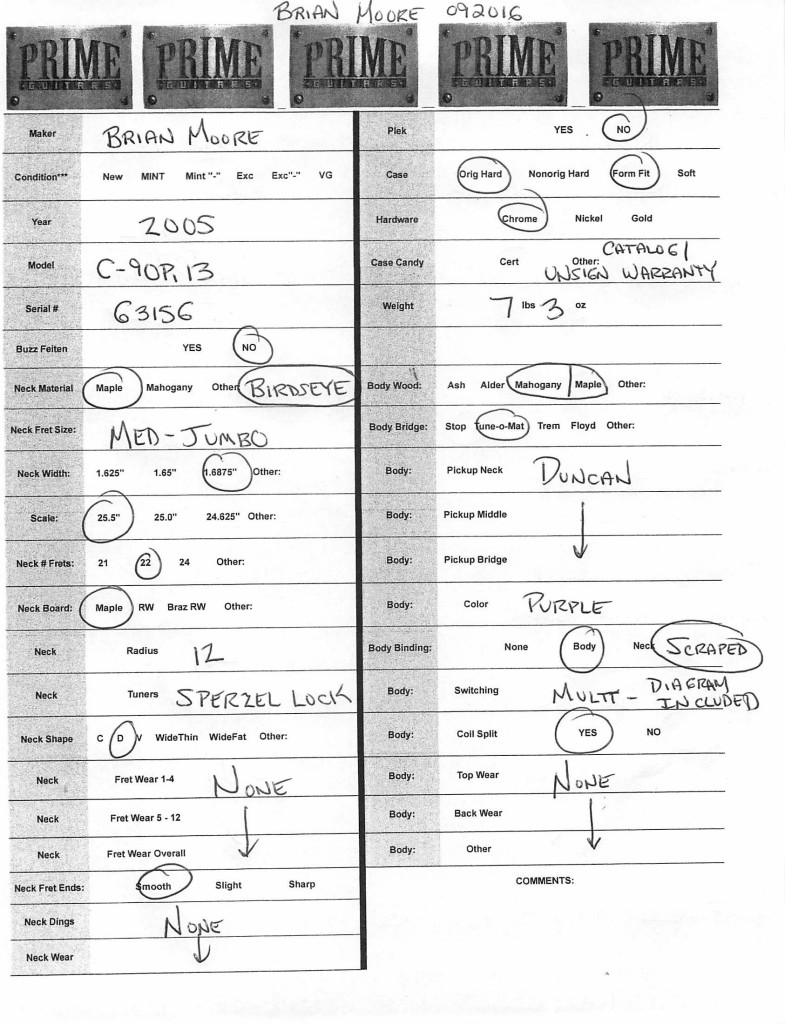 BRIAN MOORE 092016
PRIME GUITARS PRIME GUITARS PRIME GUITARS PRIME GUITARS PRIME GUITARS
Maker BRIAN MOORE
Condition*** New MINT Mint "-" Exc Exc"-" VG
Year 2005
Model C-90P.13
Serial # 63156
Buzz Feiten YES NO
Neck Material Maple Mahogany Other BIRDSEYE
Neck Fret Size: MED-JUMBO
Neck Width: 1.625" 1.65" 1.6875" Other:
Scale: 25.5" 25.0" 24.625" Other:
Neck # Frets: 21 22 24 Other:
Neck Board: Maple RW Braz RW Other:
Neck Radius 12
Neck Tuners SPERZEL LOCK
Neck Shape C D V WideThin WideFat Other:
Neck Fret Wear 1-4 NONE
Neck Fret Wear 5 - 12
Neck Fret Wear Overall
Neck Fret Ends: Smooth Slight Sharp
Neck Dings NONE
Neck Wear
Plek YES NO
Case Orig Hard Nonorig Hard Form Fit Soft
Hardware Chrome Nickel Gold
Case Candy Cert Other: CATALOG/
UNSIGN WARRANTY
Weight 7 lbs 3 oz
Body Wood: Ash Alder Mahogany Maple Other:
Body Bridge: Stop Tune-o-Mat Trem Floyd Other:
Body: Pickup Neck DUNCAN
Body: Pickup Middle
Body: Pickup Bridge
Body: Color PURPLE
Body Binding: None Body Neck SCRAPED
Body: Switching MULTI - DIAGRAM
INCLUDED
Body: Coil Split YES NO
Body: Top Wear NONE
Body: Back Wear
Body: Other
COMMENTS: